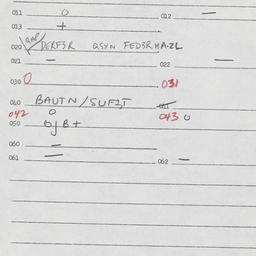 011 O 012 —
013 +
020 DERF3R QSYN FED3RMAZL
021 — 022 —
030 O 031
040 BAUTN/SUFIT 041
042 O 043 O
050 OJB+
060 —
061 — 062 —